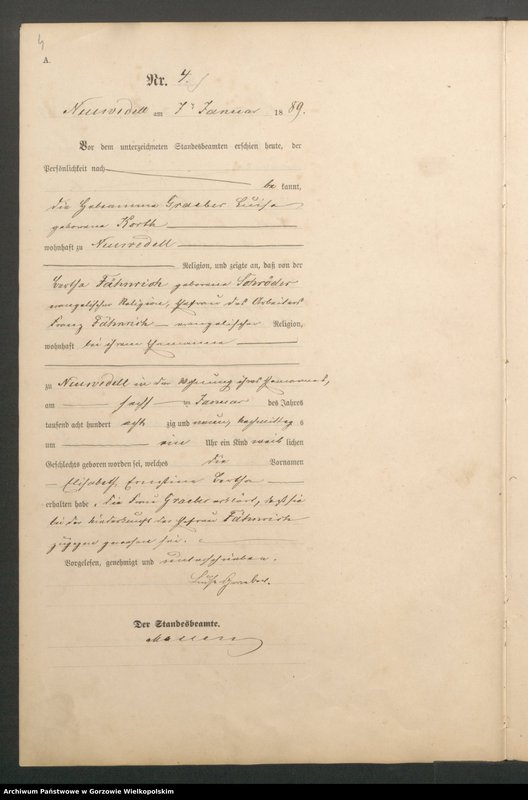 4
A.
Nr. 4.
Neuwedell am 7ten Januar 1889.
Vor dem unterzeichneten Standesbeamten erschien heute, der
Persönlichkeit nach
be kannt,
die Hebamme Graeber Luise
geborene Korth
wohnhaft zu Neuwedell
Religion, und zeigte an, daß von der
Bertha Fähnrich geborene Schröder
evangelischer Religion, Ehefrau des Arbeiters
Franz Fähnrich evangelischer Religion,
wohnhaft bei ihrem Ehemanne
zu Neuwedell in der Wohnung ihres Ehemannes,
am sechs ten Januar des Jahres
tausend acht hundert acht zig und neun, Nachmittags
um ein Uhr ein Kind weib lichen
Geschlechts geboren worden sei, welches die Vornamen
Elisabeth Ernstine Bertha
erhalten habe, die Frau Graeber erklärt, daß sie
bei der Niederkunft der Ehefrau Fähnrich
zugegen gewesen sei.
Vorgelesen, genehmigt und unterschrieben.
Luise Graeber.
Der Standesbeamte.
Archiwum Państwowe w Gorzowie Wielkopolskim